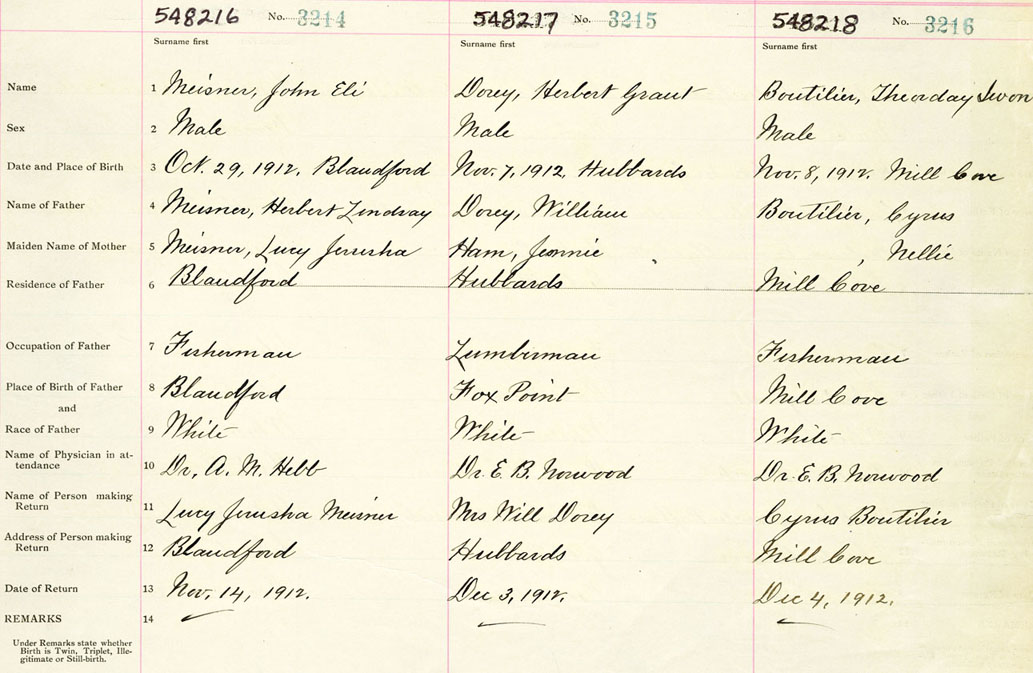 548216 No. 3214 548217 No. 3215 548218 No. 3216
Surname first Surname first Surname first
Name 1 Meisner, John Eli Dorey, Herbert Grant Boutilier, Theorday
Sex 2 Male Male Male
Date and Place of Birth 3 Oct. 29, 1912, Blandford Nov. 7, 1912, Hubbards Nov. 8, 1912. Mill Cove
Name of Father 4 Meisner, Herbert Lindsay Dorey, William Boutilier, Cyrus
Maiden Name of Mother 5 Meisner, Lucy Jerusha Ham, Jennie , Nellie
Residence of Father 6 Blandford Hubbards Mill Cove
Occupation of Father 7 Fisherman Lumberman Fisherman
Place of Birth of Father 8 Blandford Fox Point Mill Cove
and
Race of Father 9 White White White
Name of Physician in at-
tendance 10 Dr. A. M. Hebb Dr. E. B. Norwood Dr. E. B. Norwood
Name of Person making
Return 11 Lucy Jerusha Meisner Mrs Will Dorey Cyrus Boutilier
Address of Person making
Return 12 Blandford Hubbards Mill Cove
Date of Return 13 Nov. 14, 1912. Dec 3, 1912. Dec 4, 1912.
REMARKS 14
Under Remarks state whether
Birth is Twin, Triplet, Ille-
gitimate or Still-birth.